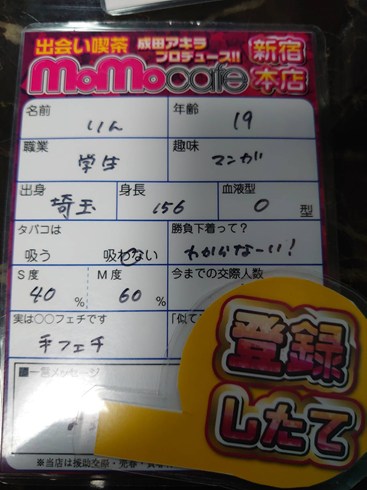 出会い喫茶 成田アキラ
プロデュース!!
MoMocafe 新宿
本店
名前 りん 年齢 19
職業 学生 趣味 マンガ
出身 埼玉 身長 156 血液型 O 型
タバコは 勝負下着って?
吸う 吸わない わからなーい!
S度 M度 今までの交際人数
40 % 60 %
実は○○フェチです 「似て
手フェチ
登録
したて
■一言メッセージ
※当店は援助交際・売春・